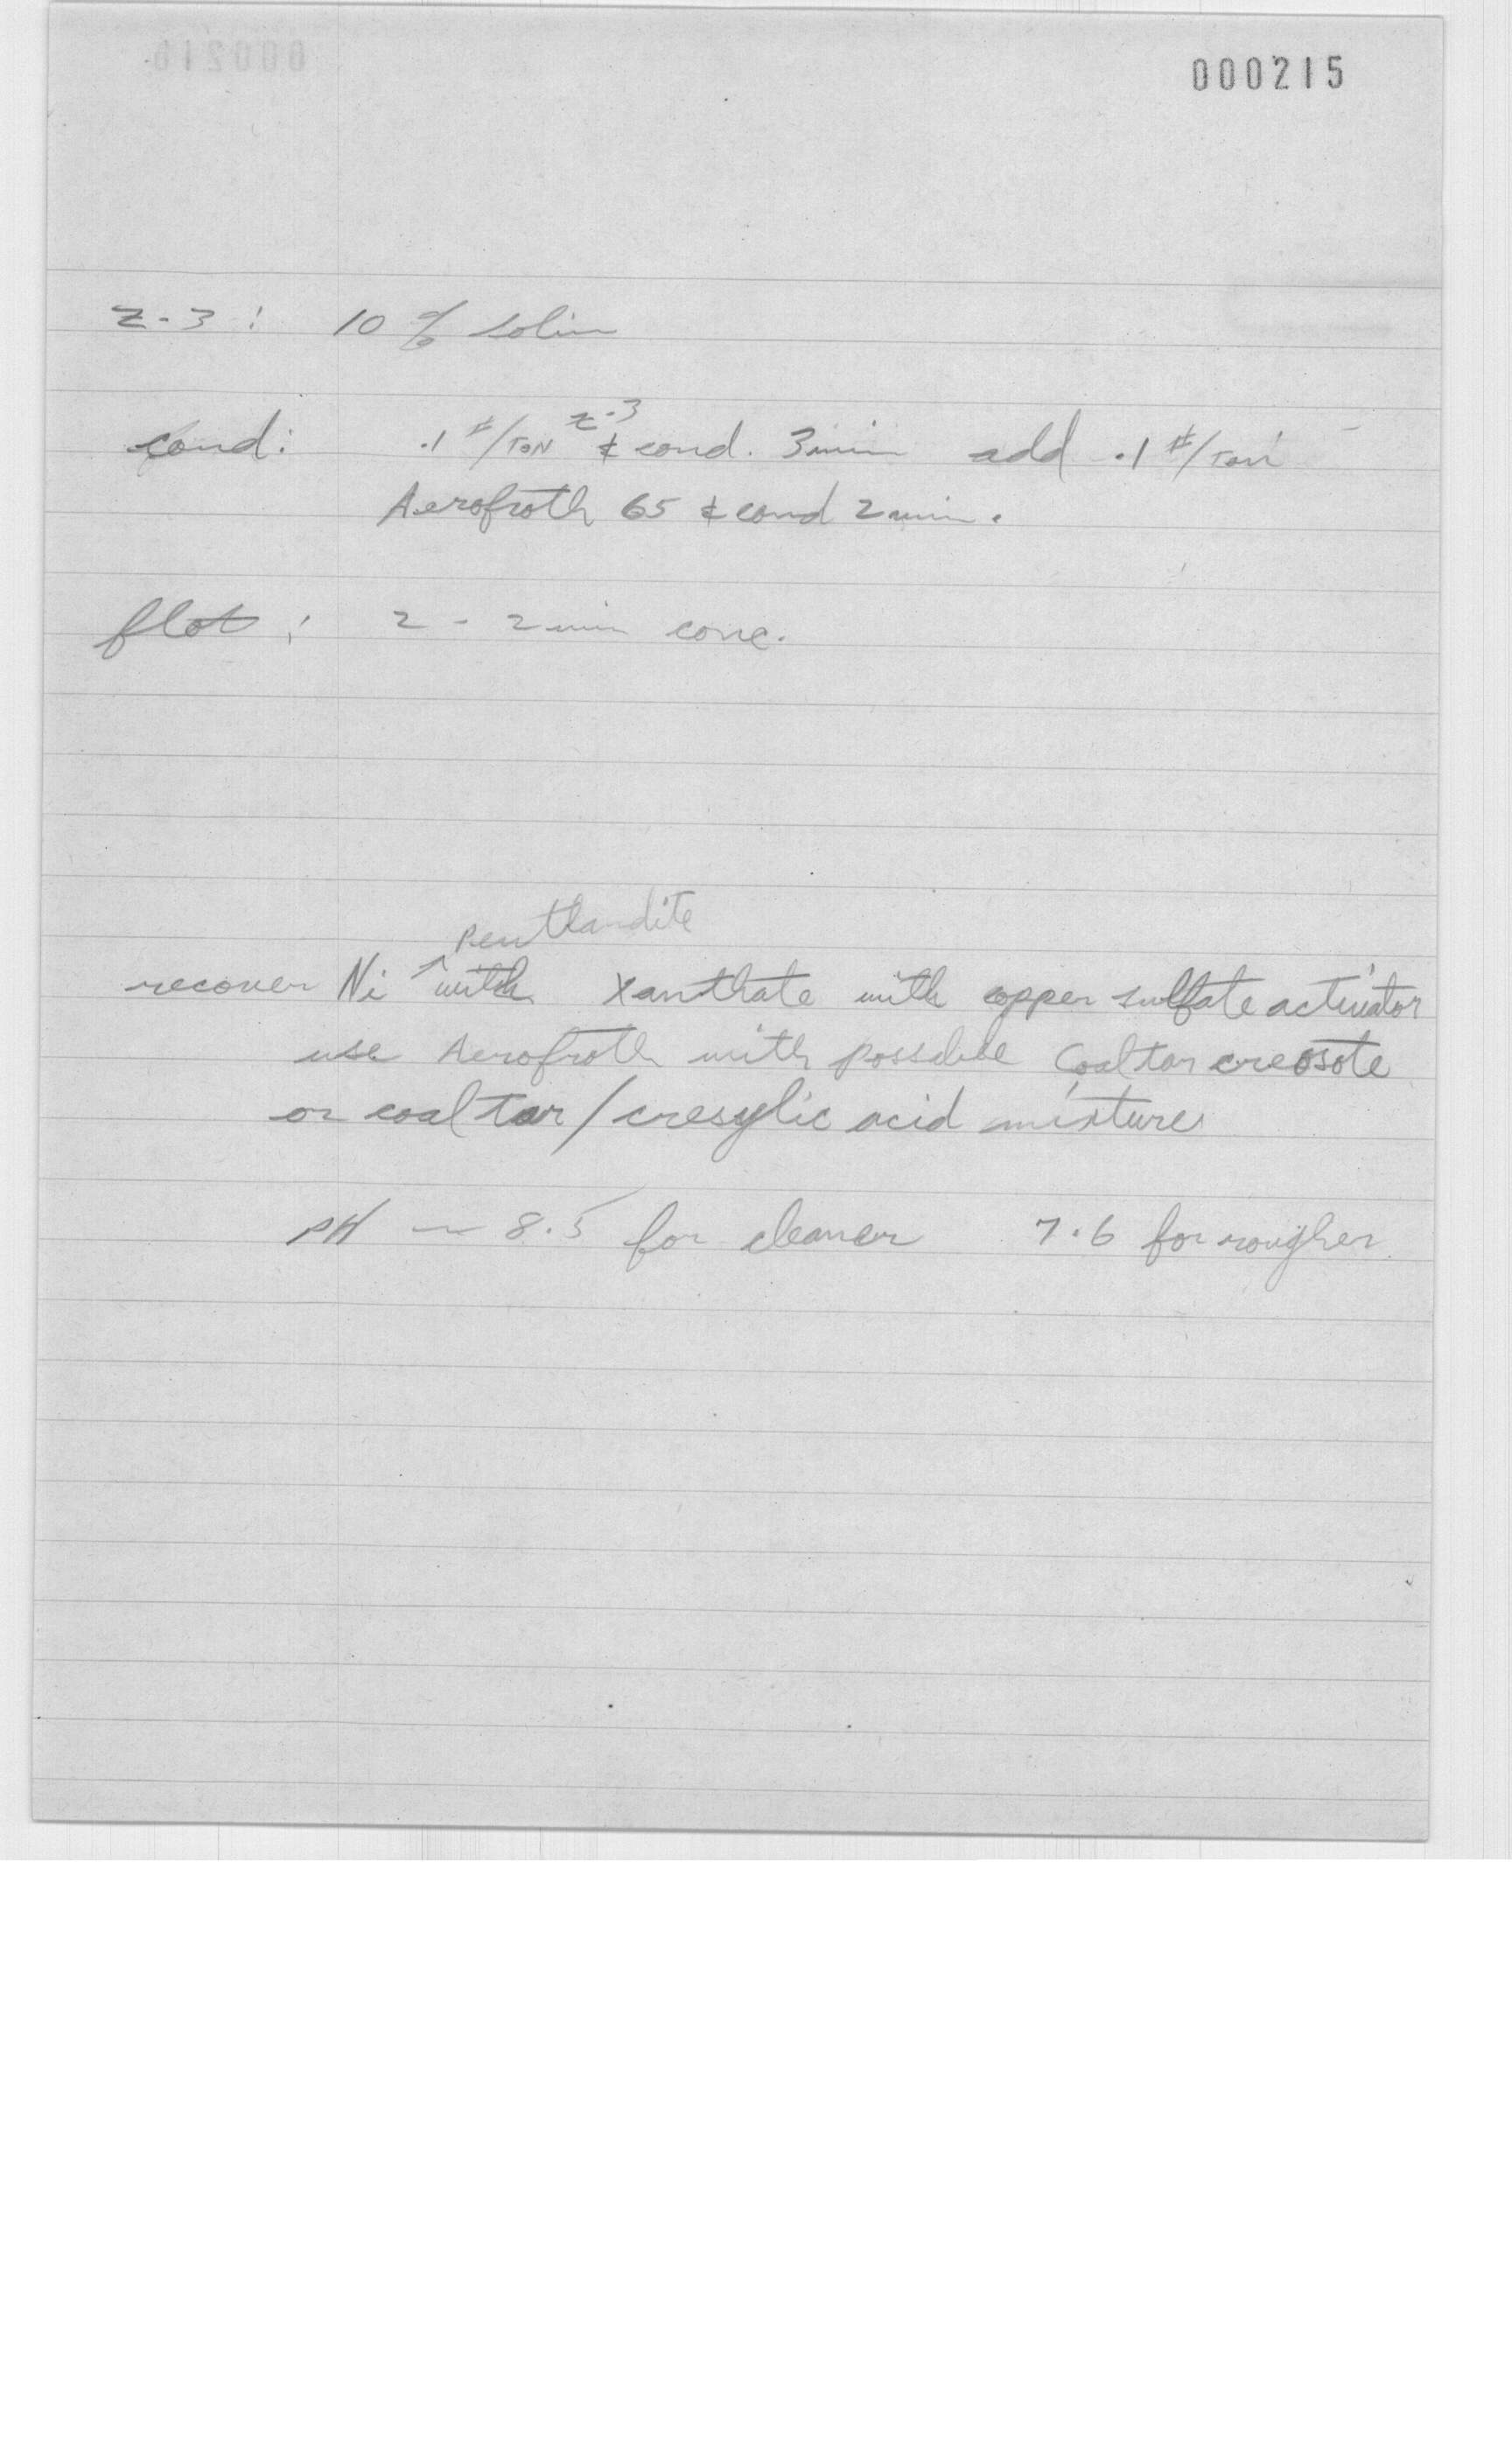 000215
Z-3: 10% soln
cond: .1 #/TON Z-3 & cond. 3 min add .1 #/Ton
Aerofroth 65 & cond 2 min.
flot: 2 - 2 min conc.
pentlandite
recover Ni ^ with Xanthate with copper sulfate activator
use Aerofroth with possible Coaltar creosote
or coal tar / cresylic acid mixture
PH ~ 8.5 for cleaner 7.6 for rougher